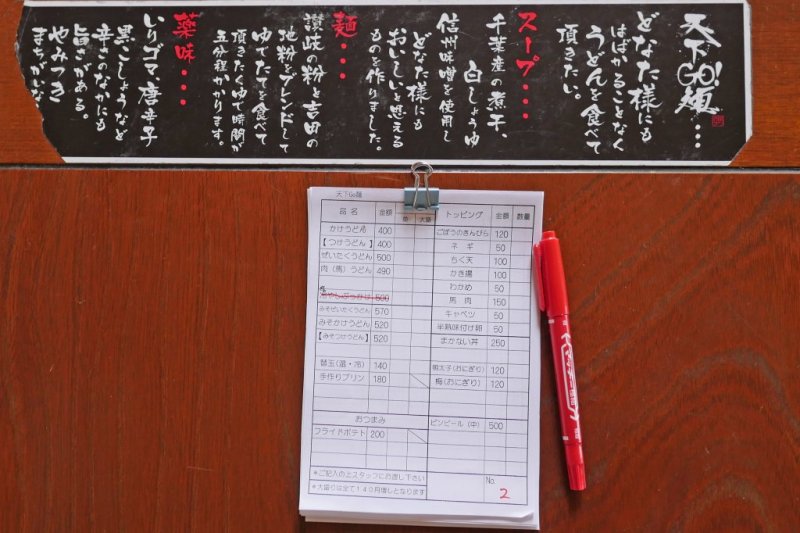 天下GO!麺・・・
どなた様にも
はばかることなく
うどんを食べて
頂きたい。
スープ・・・
千葉産の煮干、
白しょうゆ
信州味噌を使用し
どなた様にも
おいしいと思える
ものを作りました。
麺・・・
讃岐の粉と吉田の
地粉をブレンドして
ゆでたてを食べて
頂きたくゆで時間が
五分程かかります。
薬味・・・
いりゴマ、唐辛子
黒こしょうなど
辛さのなかにも
旨さがある。
やみつき
まちがいな
天下Go麺
品名 金額 並 大盛 トッピング 金額 数量
かけうどん 400
【つけうどん】 400
ぜいたくうどん 500
肉(馬)うどん 490
冷やしぶっかけ 500
みそぜいたくうどん 570
みそかけうどん 520
【みそつけうどん】 520
替玉(温・冷) 140
手作りプリン 180
おつまみ
フライドポテト 200
ごぼうのきんぴら 120
ネギ 50
ちく天 100
かき揚 100
わかめ 50
馬肉 150
キャベツ 50
半熟味付け卵 50
まかない丼 250
明太子(おにぎり) 120
梅(おにぎり) 120
ビンビール(中) 500
*ご記入の上スタッフにお渡し下さい
*大盛りは全て140円増しとなります
No.
2